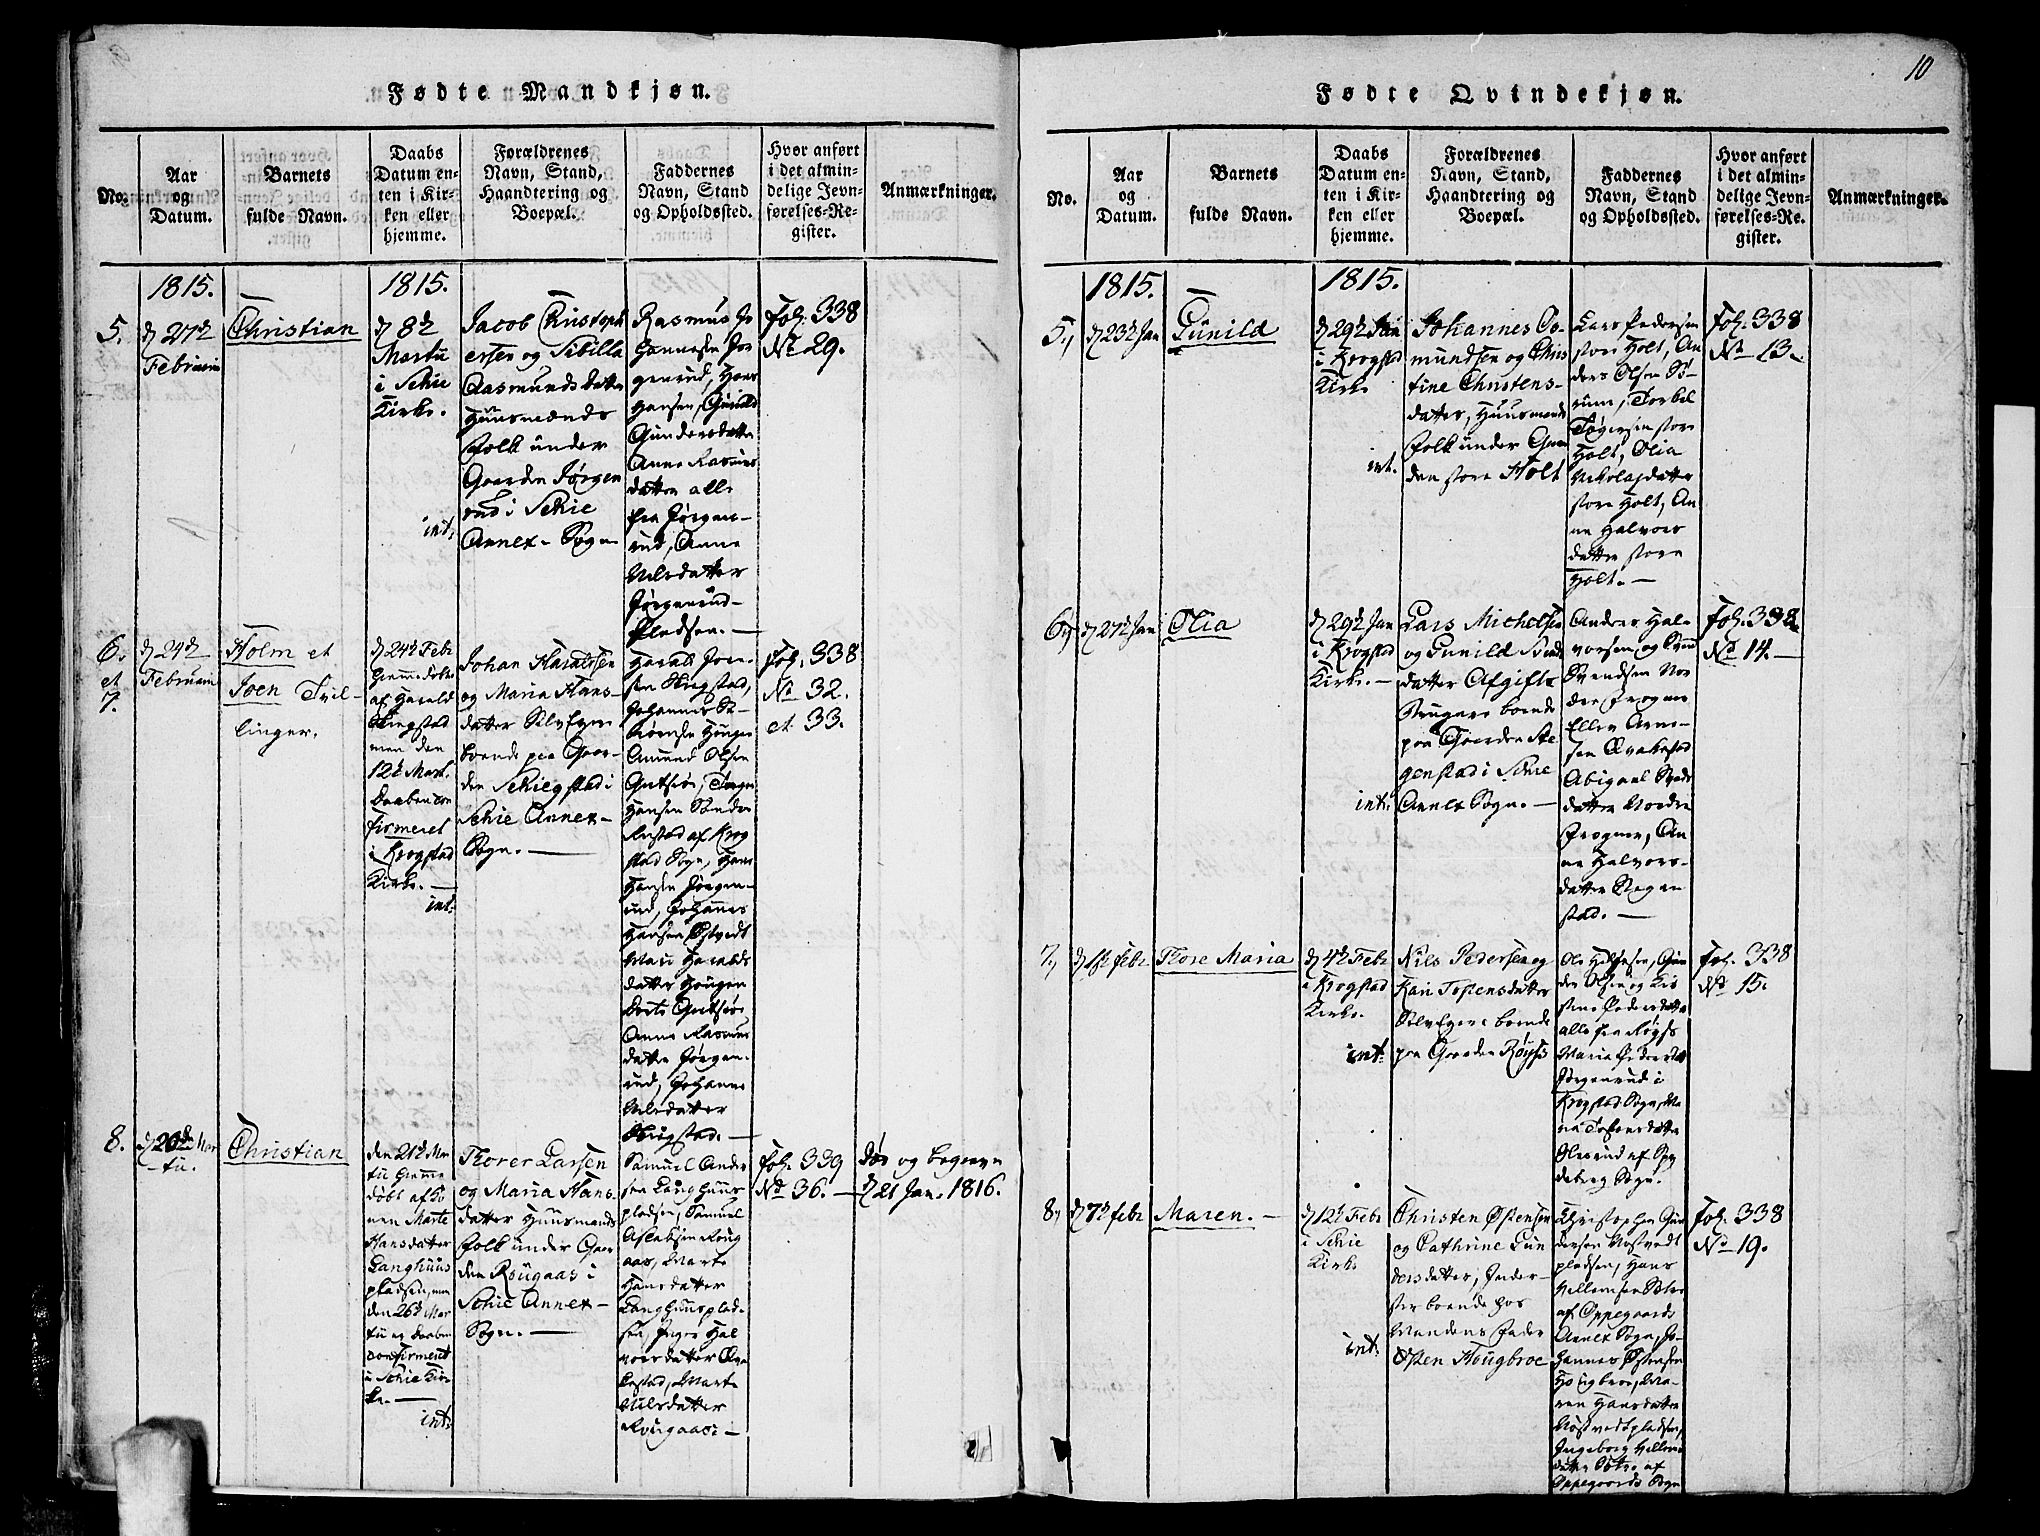 10
Fødte Mandkjøn.
No.
Aar
og
Datum.
Barnets
fulde Navn.
Daabs
Datum en-
ten i Kir-
ken eller
hjemme.
Forældrenes
Navn, Stand,
Haandtering og
Boepæl.
Faddernes
Navn, Stand
og Opholdssted.
Hvor anført
i det almin-
delige Jevn-
førelses-Re-
gister.
Anmærkninger.
1815.
1815.
5.
d 27de
Februarii
Christian
d 8de
Martii
i Schie
Kirke.
int:
Jacob Christoph
ersen og Sibilla
Rasmundsdatter
Huusmænds
folk under
Gaarden Jørgen
rud i Schie
Annex-Sogn
Rasmus Jo
hannesen Jør
genrud, Hans
Hansen, Gunild
Gundersdatter
Anne Rasmus
datter alle
fra Jørgen-
rud, Anne
Nilsdatter
Jørgenrud-
Pladsen.
Fol. 338
No 29.
6.
et
7.
d 24de
Februarii
Holm et
Joen Tvil-
linger.
d 24de Febr
hjemmedøbt
af Harald
Skiegstad
men den
12te Mart.
Daaben con
firmeret
i Krogstad
Kirke.
int:
Johan Haraldsen
og Maria Hans-
datter Selv Eger
boende paa Gaar-
den Schiegstad i
Schie Annex-
Sogn.
Harald Joen-
sen Skiegstad,
Johannes
Hougen
Amund Olsen
Hansen Sønder
af Krog
stad Sogn, Hans
Hansen Jørgen-
rud, Johannes
Hansen Østvedt
Mari Haralds
datter Hougen
Anne Rasmus
datter Jørgen-
rud, Johanne
Nilsdatter
Skiegstad.
Fol. 338
No. 32.
et 33.
8.
d 20de Mar
tii.
Christian
den 21de Mar
tii hjemme
døbt af Ko
nen Marte
Hansdatter
Langhuus
pladsen, men
den 26de Mar
tii er Daaben
confirmeret
i Schie Kir
ke.
int:
Thorer Larsen
og Maria Hans
datter Huusmands
folk under Gaar
den Rougaas i
Schie Annex-
Sogn.
Samuel Ander
sen Langhuus
pladsen, Samuel
Aslaksen Roug
aas, Marte
Hansdatter
Langhuusplad-
sen, Inger Hal
vorsdatter
Marte
Nilsdatter
Rougaas.
Fol. 339
No 36.
Døe og begraven
d 21 Jan. 1816.
Fødte Qvindekjøn.
No.
Aar
og
Datum.
Barnets
fulde Navn.
Daabs
Datum en-
ten i Kir-
ken eller
hjemme.
Forældrenes
Navn, Stand,
Haandtering og
Boepæl.
Faddernes
Navn, Stand
og Opholdssted.
Hvor anført
i det almin-
delige Jevn-
førelses-Re-
gister.
Anmærkninger.
1815.
1815.
5.
d 23de Jan
Gunild
d 29de Jan
i Krogstad
Kirke
int.
Johannes Go
mundsen og Chris
tine Christens-
datter, Huusmands
folk under Gaar
den store Holt
Lars Pedersen
store Holt, An
ders Olsen
Torbel
store
Holt, Olia
Nikolajdatter
store Holt, An
ne Halvors
datter store
Holt.
Fol. 338
No 13.
6.
d 27de Jan
Olia
d 29de Jan
i Krogstad
Kirke.
int:
Lars Michelsen
og Gunild
datter Afgifts
Brugere boende
paa Gaarden Ste
genstad i Schie
Annex Sogn.
Anders Hal-
vorsen og
Svendsen Nor
dre Frogner
Ellen Arne-
Abigael
datter Nordre
Frogner, An
ne Halvors-
datter Stegen
stad.
Fol. 338
No 14.
7.
d 1ste Febr
Thore Maria
d 4de Febr
i Krogstad
Kirke.
int:
Nils Pedersen og
Kari Tostensdatter
Selv Eger boende
paa Gaarden Røyss
Ole
den Olsen og Kir
stine Pedersdatter
alle fra Røyss
Maria Pedersdatt
Jørgenrud i
Krogstad Sogn, Ma
ria Tostensdatter
Olerud af Spy
deberg Sogn.
Fol. 338
No 15.
8.
d 7de Febr
Maren.
d 12te Febr
i Schie
Kirke
int:
Christen Østensen
og Cathrine Gun
dersdatter, Inder-
ster boende hos
Mandens Fader
Østen Hougbroe
Christopher Gun
dersen Nostvedt
pladsen, Hans
Villumsen
af Oppegaards
Annex Sogn, Jo-
hannes Østensen
Hougbroe, Ma-
ren Hansdatter
Nostvedtpladsen,
Ingeborg Villums
datter af
Oppegaards Sogn
Fol. 338
No. 19.